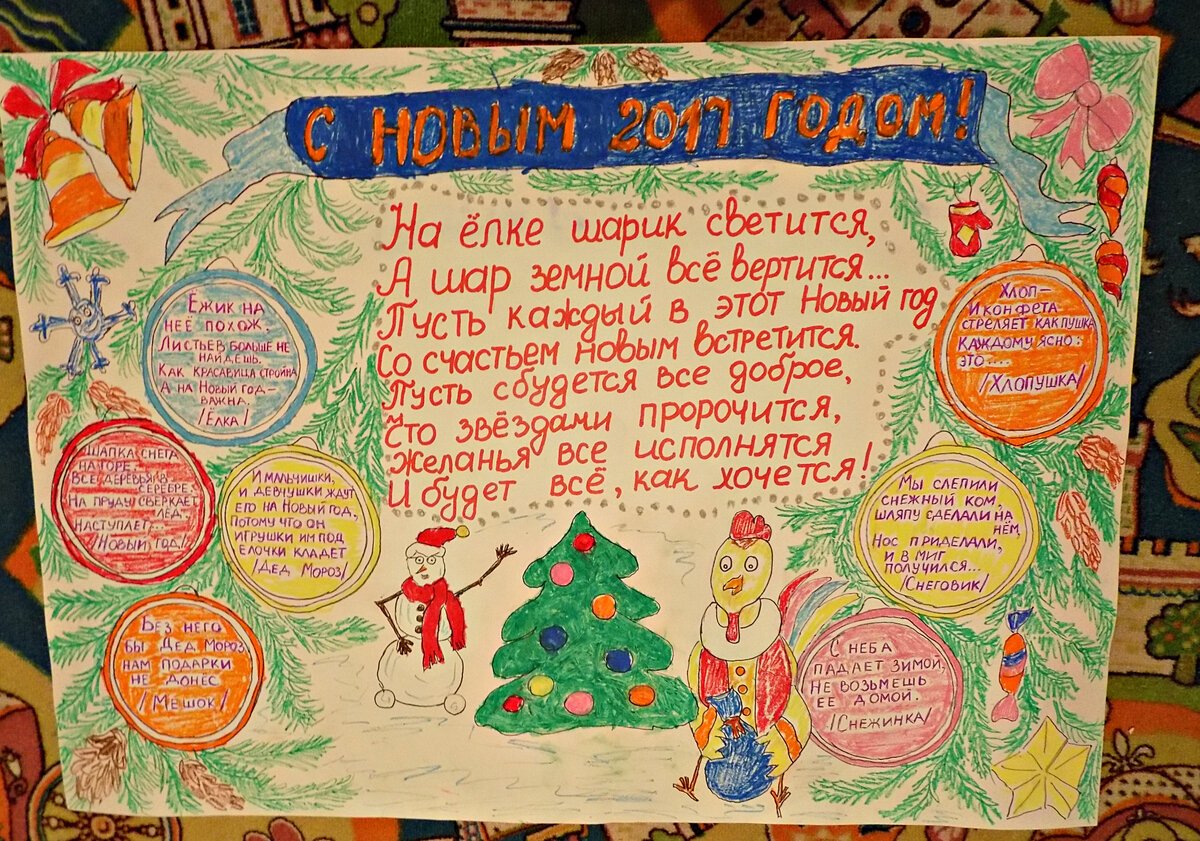 С НОВЫМ 2017 ГОДОМ!
На ёлке шарик светится,
А шар земной всё вертится...
Пусть каждый в этот Новый год
Со счастьем новым встретится.
Пусть сбудется все доброе,
Что звёздами пророчится,
Желанья все исполнятся
И будет всё, как хочется!
Ёжик на
неё похож.
Листьев больше не
найдёшь.
Как красавица стройна
А на Новый год-
важна.
/Ёлка/
Шапка снега
на горе.
Все деревья в
серебре,
На пруду сверкает
лёд,
Наступает...
/Новый год/
И мальчишки,
и девчушки ждут
его на Новый год,
Потому что он
игрушки им под
ёлочки кладет
/Дед Мороз/
Без него
бы Дед Мороз
нам подарки
не донёс
/Мешок/
Хлоп-
И конфета
стреляет как пушка
Каждому ясно:
это....
/Хлопушка/
Мы слепили
снежный ком,
шляпу сделали на
нём,
Нос приделали,
и в миг
получился...
/Снеговик/
С неба
падает зимой,
не возьмёшь
её домой.
/Снежинка/